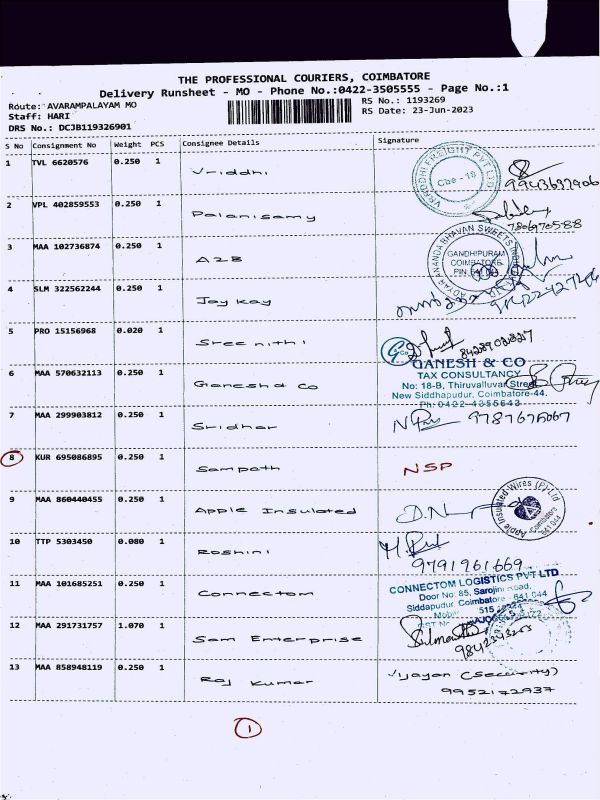 THE PROFESSIONAL COURIERS, COIMBATORE
Delivery Runsheet - MO - Phone No.:0422-3505555 - Page No.:1
Route: AVARAMPALAYAM MO
RS No.: 1193269
Staff: HARI
RS Date: 23-Jun-2023
DRS No.: DCJB119326901
S No Consignment No Weight PCS Consignee Details Signature
1 TVL 6620576 0.250 1 Vriddhi
VRIDDHI FREIGHT PVT LTD
Cbe - 18
2 VPL 402859553 0.250 1 Palanisamy
3 MAA 102736874 0.250 1 A2B
ADYAR ANANDA BHAVAN SWEETS
GANDHIPURAM
COIMBATORE
4 SLM 322562244 0.250 1 Jay Kay
5 PRO 15156968 0.020 1 Sree nithi
6 MAA 570632113 0.250 1 Ganesh & Co
GANESH & CO
TAX CONSULTANCY
No: 18-B, Thiruvalluvar Street
New Siddhapudur, Coimbatore-44.
Ph: 0422-4355643
7 MAA 299903812 0.250 1 Sridhar
8 KUR 695086895 0.250 1 Sampath NSP
9 MAA 860440455 0.250 1 Apple Insulated
Apple Insulated Wires (P) Ltd
Coimbatore
641 044
10 TTP 5303450 0.080 1 Roshini
9791961669
11 MAA 101685251 0.250 1 Connectom
CONNECTOM LOGISTICS PVT LTD
Door No: 85, Sarojini Road,
Siddapudur, Coimbatore - 641 044
12 MAA 291731757 1.070 1 Sam Enterprise
13 MAA 858948119 0.250 1 Raj Kumar Vijayan (Security)
9952172937
1